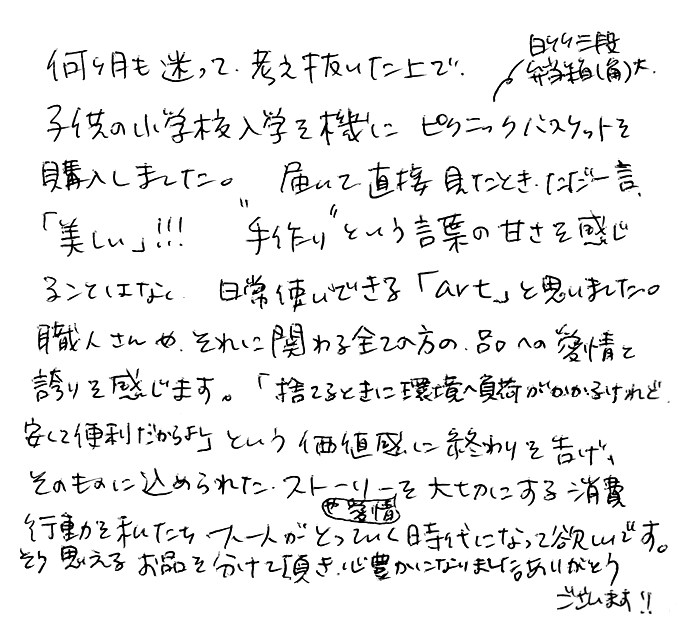 何ヶ月も迷って、考え抜いた上で、
白竹三段
弁当箱(角)大、
子供の小学校入学を機に ピクニックバスケットを
購入しました。 届いて直接見たとき、ただ一言、
「美しい」!!! "手作り"という言葉の甘さを感じ
ることはなく、 日常使いできる「art」と思いました。
職人さんや、それに関わる全ての方の、品への愛情と
誇りを感じます。「捨てるときに環境へ負荷がかかるけれど、
安くて便利だからよし」という価値感に終わりを告げ、
そのものに込められた、ストーリーを大切にする消費
や愛情
行動が私たち、大人がとっていく時代になって欲しいです。
そう思えるお品を分けて頂き、心豊かになりました。ありがとう
ございます!!